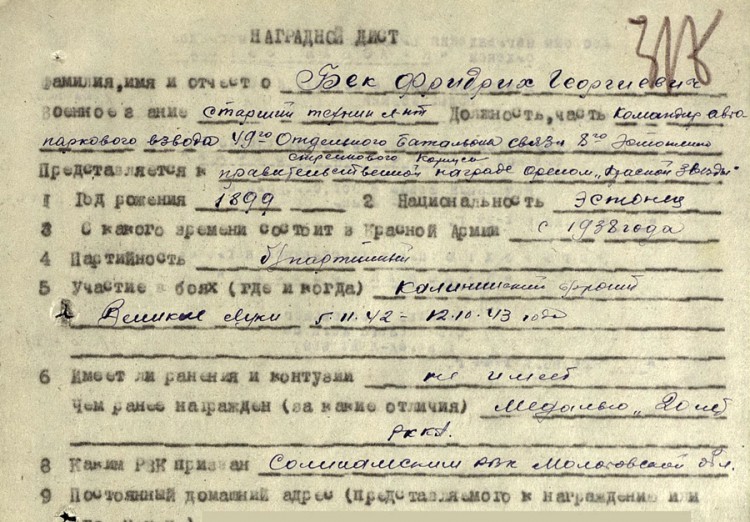 НАГРАДНОЙ ЛИСТ
Фамилия, имя и отчест о Бек Фридрих Георгиевич
Военное з ание старший техник л-нт Должность, часть Командир авто
паркового взвода 49го Отдельного батальона связи 8го Эстонско
стрелкового Корпуса
Представляется к правительственной награде орденом „Красной Звезды"
1 Год рожения 1899 2 Национальность Эстонец
3 С какого времени состоит в Красной Армии с 1938 года
4 Партийность б/партийный
5 Участие в боях (где и когда) Калининский фронт
Великие Луки 5.11.42 - 12.10.43 года
6 Имеет ли ранения и контузии не имеет
Чем ранее награжден (за какие отличия) Медалью „20 лет
РККА.
8 Каким РВК призван Соликамским РВК Молотовской обл.
9 Постоянный домашний адрес (представляемого к награждению или